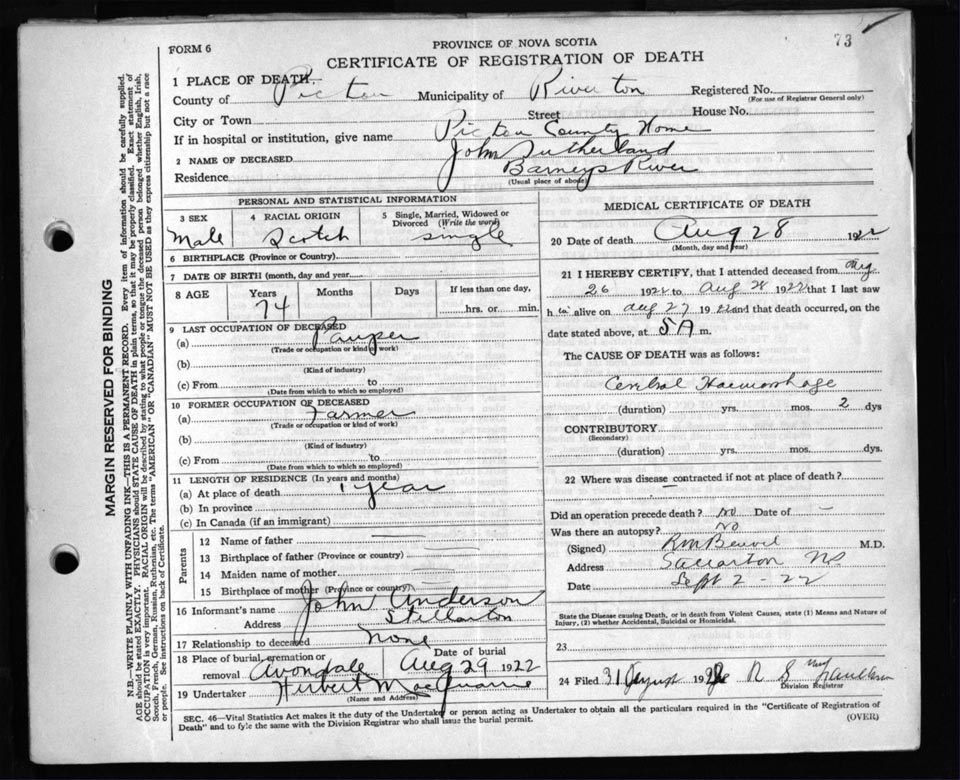 73
FORM 6
PROVINCE OF NOVA SCOTIA
CERTIFICATE OF REGISTRATION OF DEATH
1 PLACE OF DEATH
County of Pictou Municipality of Riverton Registered No.
(For use of Registrar General only)
City or Town Street House No.
If in hospital or institution, give name Pictou County Home
2 NAME OF DECEASED John Sutherland
Residence Barneys River
(Usual place of abode)
PERSONAL AND STATISTICAL INFORMATION
3 SEX Male
4 RACIAL ORIGIN Scotch
5 Single, Married, Widowed or Divorced (Write the word) single
6 BIRTHPLACE (Province or Country)
7 DATE OF BIRTH (month, day and year)
8 AGE Years 74 Months Days If less than one day, hrs. or min.
9 LAST OCCUPATION OF DECEASED
(a) Pauper
(Trade or occupation or kind of work)
(b)
(Kind of industry)
(c) From to
(Date from which to which so employed)
10 FORMER OCCUPATION OF DECEASED
(a) Farmer
(Trade or occupation or kind of work)
(b)
(Kind of industry)
(c) From to
(Date from which to which so employed)
11 LENGTH OF RESIDENCE (In years and months)
(a) At place of death 1 year
(b) In province
(c) In Canada (if an immigrant)
Parents
12 Name of father
13 Birthplace of father (Province or country)
14 Maiden name of mother
15 Birthplace of mother (Province or country)
16 Informant's name John Anderson
Address Stellarton
17 Relationship to deceased none
18 Place of burial, cremation or removal Avondale
Date of burial Aug 29 1922
19 Undertaker
(Name and Address)
MEDICAL CERTIFICATE OF DEATH
20 Date of death Aug 28 1922
(Month, day and year)
21 I HEREBY CERTIFY, that I attended deceased from Aug
26 1922 to Aug 28 1922 that I last saw
h im alive on Aug 27 1922 and that death occurred, on the
date stated above, at 5 A m.
The CAUSE OF DEATH was as follows:
Cerebral Haemorrhage
(duration) yrs. mos. 2 dys
CONTRIBUTORY
(Secondary)
(duration) yrs. mos. dys.
22 Where was disease contracted if not at place of death?
Did an operation precede death? No Date of –
Was there an autopsy? No
(Signed) M.D.
Address Stellarton NS
Date Sept 2 - 22
State the Disease causing Death, or in death from Violent Causes, state (1) Means and Nature of Injury, (2) whether Accidental, Suicidal or Homicidal.
23
24 Filed 31 August 1922
Division Registrar
SEC. 46—Vital Statistics Act makes it the duty of the Undertaker or person acting as Undertaker to obtain all the particulars required in the "Certificate of Registration of
Death" and to fyle the same with the Division Registrar who shall issue the burial permit.
(OVER)
MARGIN RESERVED FOR BINDING
N.B.—WRITE PLAINLY WITH UNFADING INK—THIS IS A PERMANENT RECORD. Every item of information should be carefully supplied.
AGE should be stated EXACTLY. PHYSICIANS should STATE CAUSE OF DEATH in plain terms, so that it may be properly classified. Exact statement of
OCCUPATION is very important. RACIAL ORIGIN will be described by stating to what people or tongue the deceased person belonged whether English, Irish,
Scotch, French, German, Russian, Ruthenian, etc. The terms "AMERICAN" or "CANADIAN" MUST NOT BE USED as they express citizenship but not a race
or people. See instructions on back of Certificate.